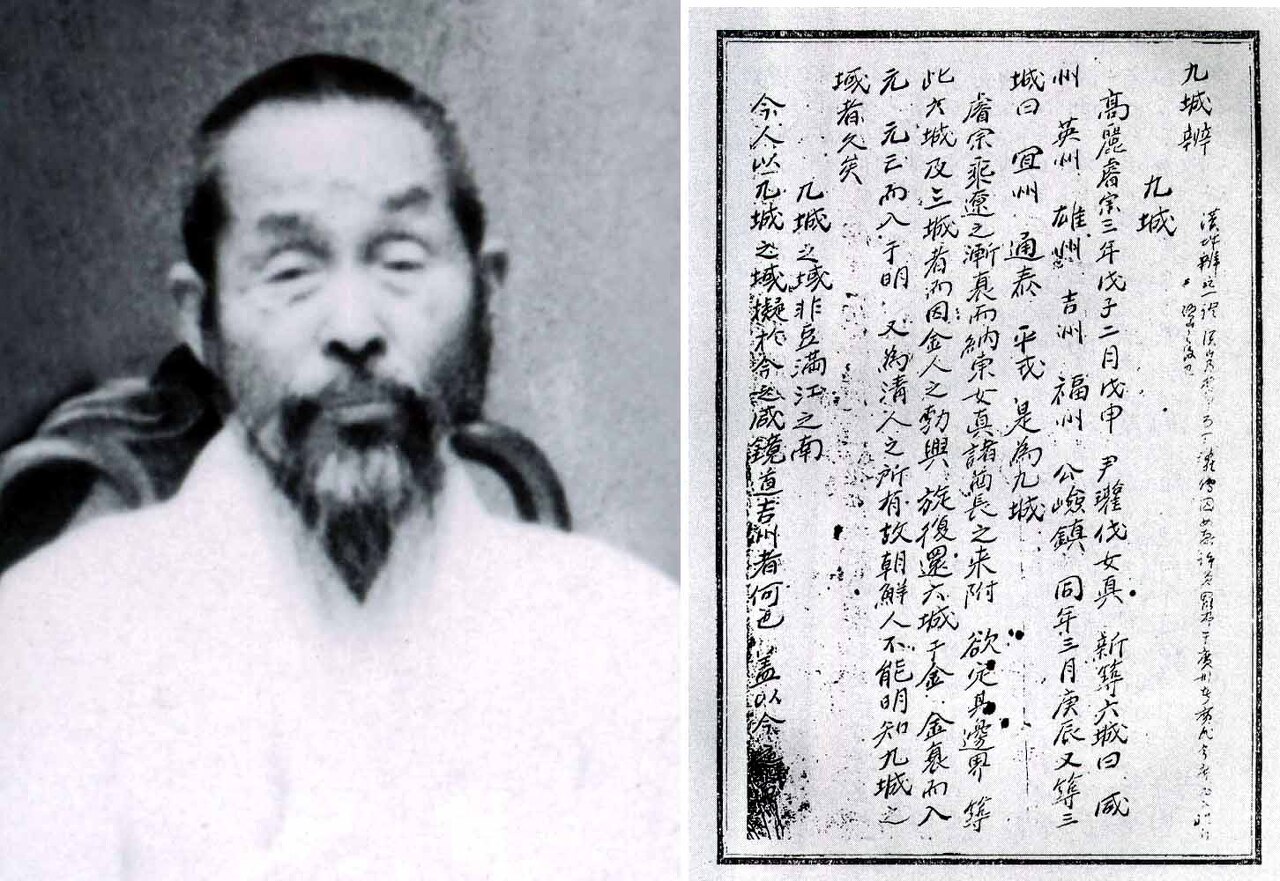 九城辨
九城
高麗睿宗三年戊子二月戊申 尹瓘伐女真 新築六城曰 咸
州 英州 雄州 吉洲 福州 公嶮鎮 同年三月庚辰又築三
城曰 宜州 通泰 平戎 是為九城
睿宗乘遼之漸衰而納東女真諸酋長之来附 欲定其邊界 築
此六城及三城者而因金人之勃興 旋復還六城于金 金衰而入
元 元亡而入于明 又為清人之所有故朝鮮人不能明知九城之
域者久矣
九城之域非豆满江之南
今人以九城之域擬於今之咸鏡道吉州者何也 盖以今之